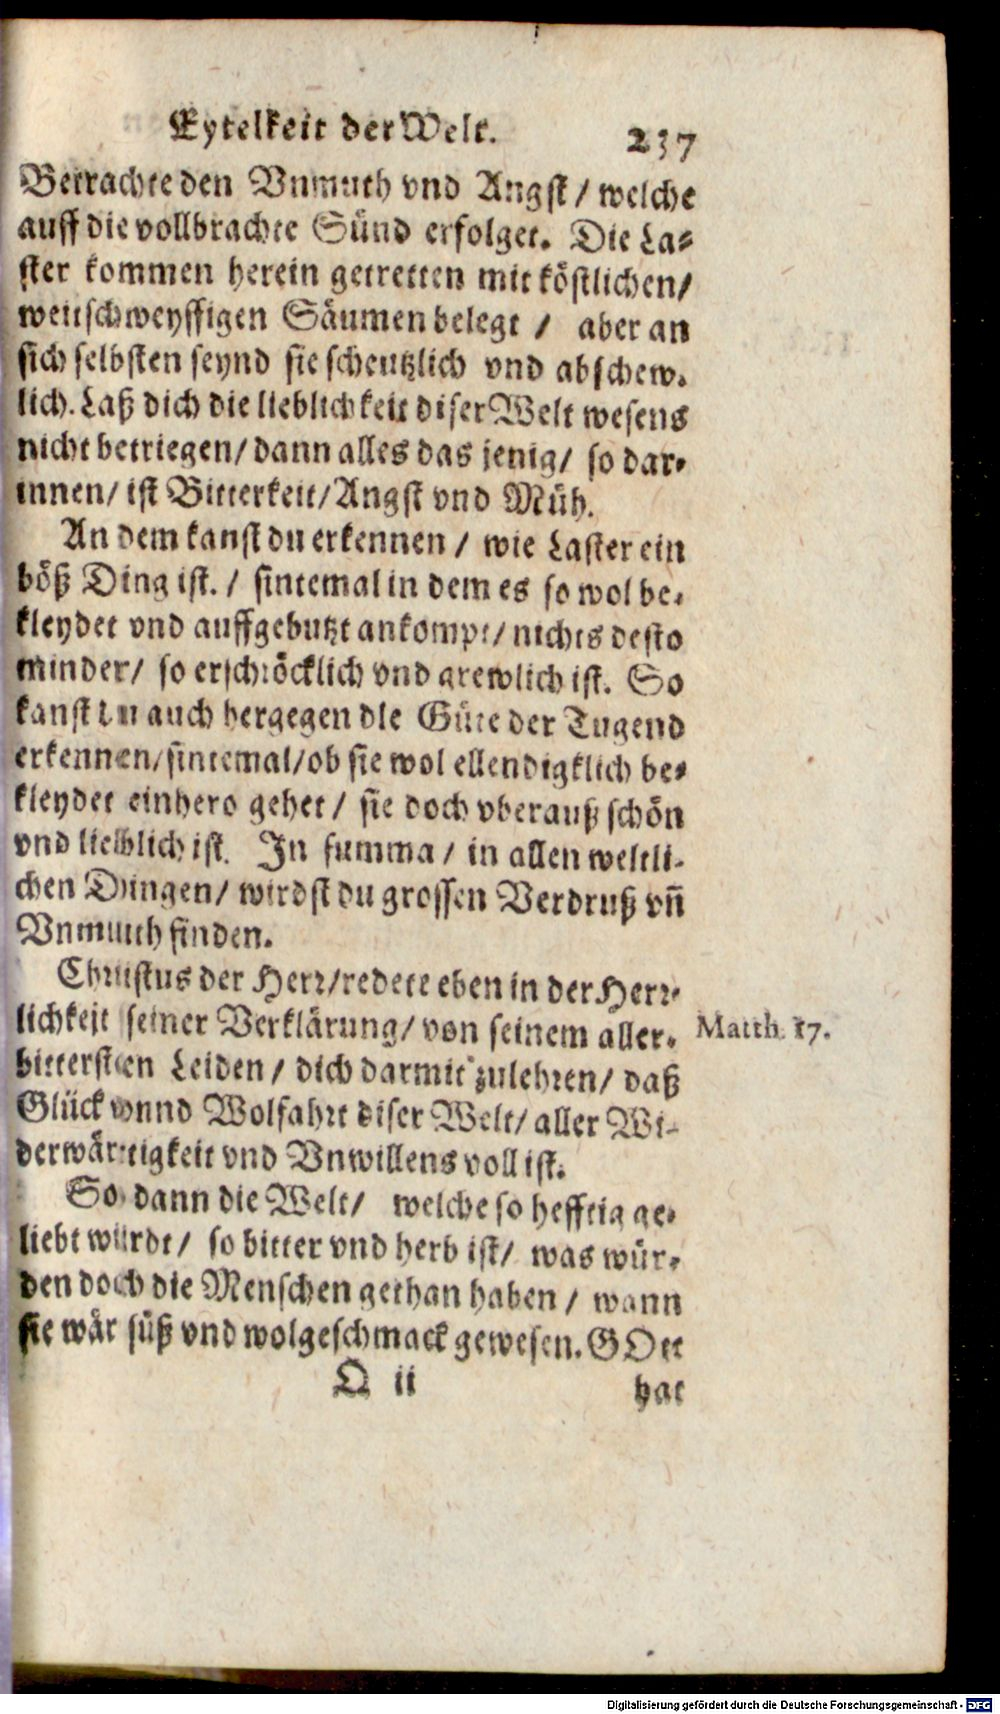 Eytelkeit der Welt. 237
Betrachte den Vnmuth vnd Angst / welche
auff die vollbrachte Sünd erfolget. Die La-
ster kommen herein getretten mit köstlichen/
weitschweyffigen Säumen belegt / aber an
sich selbsten seynd sie scheutzlich vnd abschew-
lich. Laß dich die lieblichkeit diser Welt wesens
nicht betriegen/ dann alles das jenig/ so dar-
innen/ ist Bitterkeit/ Angst vnd Müh.
An dem kanst du erkennen / wie Laster ein
böß Ding ist. / sintemal in dem es so wol be-
kleydet vnd auffgebutzt ankompt/ nichts desto
minder/ so erschröcklich vnd grewlich ist. So
kanst du auch hergegen die Güte der Tugend
erkennen/ sintemal/ ob sie wol ellendigklich be-
kleydet einhero gehet / sie doch vberauß schön
vnd lieblich ist. In summa / in allen weltli-
chen Dingen/ wirdst du grossen Verdruß vñ
Vnmuth finden.
Christus der Herr/ redete eben in der Herr-
lichkeit seiner Verklärung/ von seinem aller-
Matth. 17.
bittersten Leiden / dich darmit zulehren/ daß
Glück vnnd Wolfahrt diser Welt/ aller Wi-
derwärtigkeit vnd Vnwillens voll ist.
So dann die Welt/ welche so hefftig ge-
liebt würdt / so bitter vnd herb ist/ was wür-
den doch die Menschen gethan haben / wann
sie wär süß vnd wolgeschmack gewesen. GOtt
Q ii hat
Digitalisierung gefördert durch die Deutsche Forschungsgemeinschaft - DFG